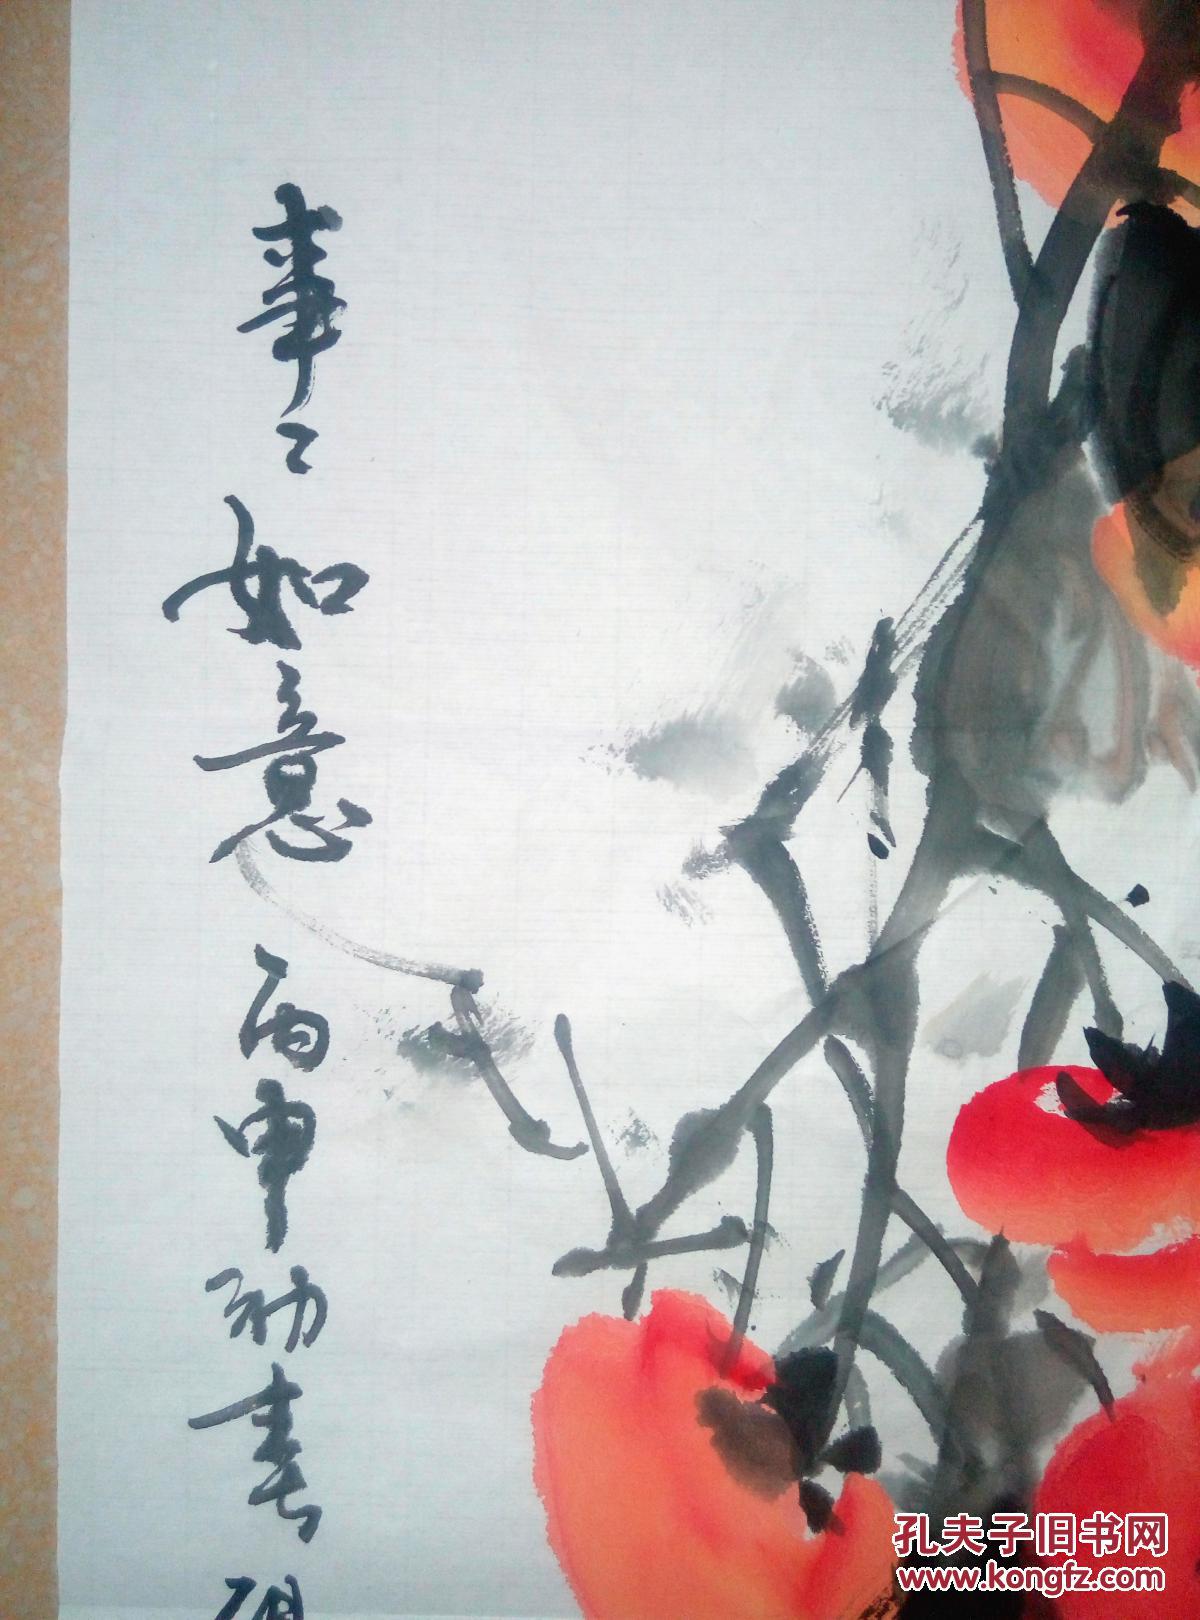 事〻如意 丙申初春
孔夫子旧书网
www.kongfz.com